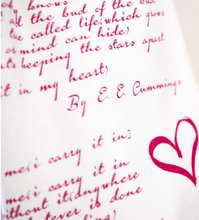 knows
the bud of the bud
called life;which grows
or mind can hide)
keeping the stars apart
it in my heart)
By E. E. Cummings
carry it in)
me(i carry it in
without it(anywhere
whatever is done